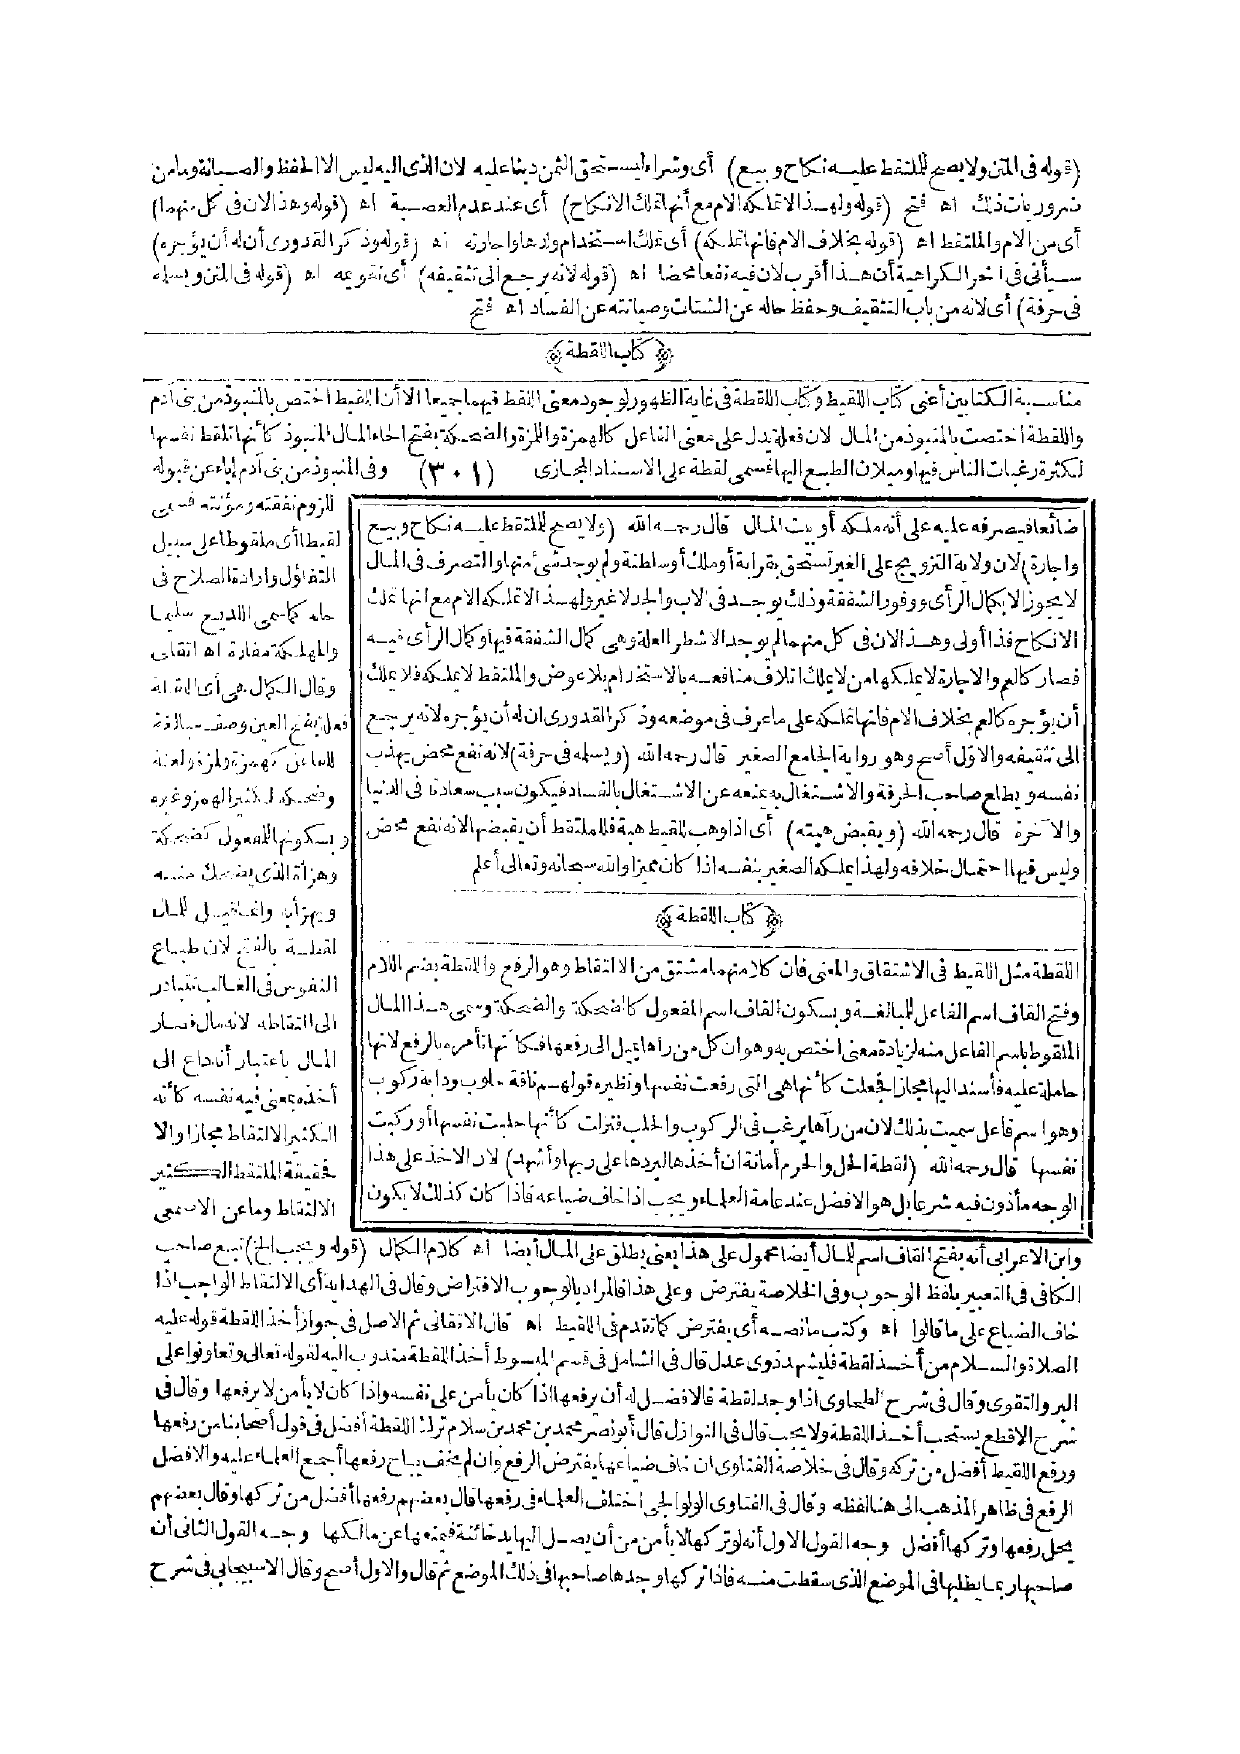 (قوله في المتن ولا يصح للملتقط عليه نكاح وبيع) أي وشراء ليستحق الثمن دينا عليه لان الذي اليه ليس الا الحفظ والصيانة وما من
ضروريات ذلك اه فتح (قوله ولهذا لا تملكه الام مع أنها تملك الانكاح) أي عند عدم العصبة اه (قوله وهذا لان في كل منهما)
أي من الام والملتقط اه (قوله بخلاف الام فانها تملكه) أي تملك استخدام ولدها واجارته اه (قوله وذكر القدوري أن له أن يؤجره)
سيأتي في آخر الكراهية أن هذا أقرب لان فيه نفعا محضا اه (قوله لانه يرجع الى تثقيفه) أي تقويمه اه (قوله في المتن ويسلمه
في حرفة) أي لانه من باب التثقيف وحفظ حاله عن الشتات وصيانته عن الفساد اه فتح
﴿كتاب اللقطة﴾
مناسبة الكتابين أعني كتاب اللقيط وكتاب اللقطة في غاية الظهور لوجود معنى اللقط فيهما جميعا الا أن اللقيط اختص بالمنبوذ من بني آدم
واللقطة اختصت بالمنبوذ من المال لان فعلة يدل على معنى الفاعل كالهمزة واللمزة والضحكة بفتح الحاء المال المنبوذ كأنها تلقط نفسها
لكثرة رغبات الناس فيها وميلان الطبع اليها فسمى لقطة على الاسناد المجازى (٣٠١) وفي المنبوذ من بني آدم اباء عن قبوله
للزوم نفقته ومؤنته فسمى
لقيطا أي ملقوطا على سبيل
التفاؤل وارادة الصلاح في
حاله كما سمى اللديغ سليما
والمهلكة مفازة اه اتقاني
وقال الكمال هي أي اللقطة
فعلة بفتح العين وصف مبالغة
للفاعل كهمزة ولمزة ولعنة
وضحكة لكثير الهمز وغيره
وبسكونها للمفعول كضحكة
وهزأة للذي يضحك منه
ويهزأ به وانما قيل للمال
لقطة بالفتح لان طباع
النفوس في الغالب تتبادر
الى التقاطه لانه مال فصار
المال باعتبار أنه داع الى
أخذه بمعنى فيه نفسه كأنه
الكثير الالتقاط مجازا والا
فحقيقة الملتقط الكثير
الالتقاط وما عن الاصمعي
ضائعا فيصرفه عليه على أنه ملكه أو بيت المال قال رحمه الله (ولا يصح للملتقط عليه نكاح وبيع
واجارة) لان ولاية التزويج على الغير تستحق بقرابة أو ملك أو سلطنة ولم يوجد شئ منها والتصرف في المال
لا يجوز الا بكمال الرأي ووفور الشفقة وذلك يوجد في الاب والجد لا غير ولهذا لا تملكه الام مع انها تملك
الانكاح فذا أولى وهذا لان في كل منهما لم يوجد الا شطر العلة وهي كمال الشفقة فيها وكمال الرأي فيه
فصار كالعم والاجارة لا يملكها من لا يملك اتلاف منافعه بالاستخدام بلا عوض والملتقط لا يملكه فلا يملك
أن يؤجره كالعم بخلاف الام فانها تملكه على ما عرف في موضعه وذكر القدوري ان له أن يؤجره لانه يرجع
الى تثقيفه والاول أصح وهو رواية الجامع الصغير قال رحمه الله (ويسلمه في حرفة) لانه نفع محض يهذب
نفسه ويطلع صاحب الحرفة والاشتغال به يمنعه عن الاشتغال بالفساد فيكون سبب سعادته في الدنيا
والآخرة قال رحمه الله (ويقبض هبته) أي اذا وهب للقيط هبة فللملتقط أن يقبضها لانه نفع محض
وليس فيها احتمال خلافه ولهذا يملكه الصغير بنفسه اذا كان مميزا والله سبحانه وتعالى أعلم
﴿كتاب اللقطة﴾
اللقطة مثل اللقيط في الاشتقاق والمعنى فان كلا منهما مشتق من الالتقاط وهو الرفع واللقطة بضم اللام
وفتح القاف اسم الفاعل للمبالغة وبسكون القاف اسم المفعول كالضحكة والضحكة وسمى هذا المال
الملقوط باسم الفاعل منه لزيادة معنى اختص به وهو ان كل من رآها يميل الى رفعها فكأنها تأمره بالرفع لانها
حاملة عليه فأسند اليها مجازا فجعلت كأنها هي التي رفعت نفسها ونظيره قولهم ناقة حلوب ودابة ركوب
وهو اسم فاعل سميت بذلك لان من رآها يرغب في الركوب والحلب فنزلت كأنها حلبت نفسها أو ركبت
نفسها قال رحمه الله (لقطة الحل والحرم أمانة ان أخذها ليردها على ربها وأشهد) لان الاخذ على هذا
الوجه مأذون فيه شرعا بل هو الافضل عند عامة العلماء ويجب اذا خاف ضياعه فاذا كان كذلك لا يكون
وابن الاعرابي أنه بفتح القاف اسم للمال أيضا محمول على هذا يعني يطلق على المال أيضا اه كلام الكمال (قوله ويجب الخ) تبع صاحب
الكافي في التعبير بلفظ الوجوب وفي الخلاصة يفترض وعلى هذا فالمراد بالوجوب الافتراض وقال في الهداية أي الالتقاط الواجب اذا
خاف الضياع على ما قالوا اه وكتب ما نصه أي يفترض كما تقدم في اللقيط اه قال الاتقاني ثم الاصل في جواز أخذ اللقطة قوله عليه
الصلاة والسلام من أخذ لقطة فليشهد ذوى عدل قال في الشامل في قسم المبسوط أخذ اللقطة مندوب اليه لقوله تعالى وتعاونوا على
البر والتقوى وقال في شرح الطحاوى اذا وجد لقطة فالافضل له أن يرفعها اذا كان يأمن على نفسه واذا كان لا يأمن لا يرفعها وقال في
شرح الاقطع يستحب أخذ اللقطة ولا يجب قال في النوازل قال أبو نصر محمد بن محمد بن سلام ترك اللقطة أفضل في قول أصحابنا من رفعها
ورفع اللقيط أفضل من تركه وقال في خلاصة الفتاوى ان خاف ضياعها يفترض الرفع وان لم يخف يباح رفعها أجمع العلماء عليه والافضل
الرفع في ظاهر المذهب الى هنا لفظه وقال في الفتاوى الولوالجي اختلف العلماء في رفعها قال بعضهم رفعها أفضل من تركها وقال بعضهم
يحل رفعها وتركها أفضل وجه القول الاول أنه لو تركها لا يأمن من أن يصل اليها يد خائنة فيمنعها عن مالكها وجه القول الثاني أن
صاحبها ربما يطلبها في الموضع الذي سقطت منه فاذا تركها وجدها صاحبها في ذلك الموضع ثم قال والاول أصح وقال الاسبيجابي في شرح